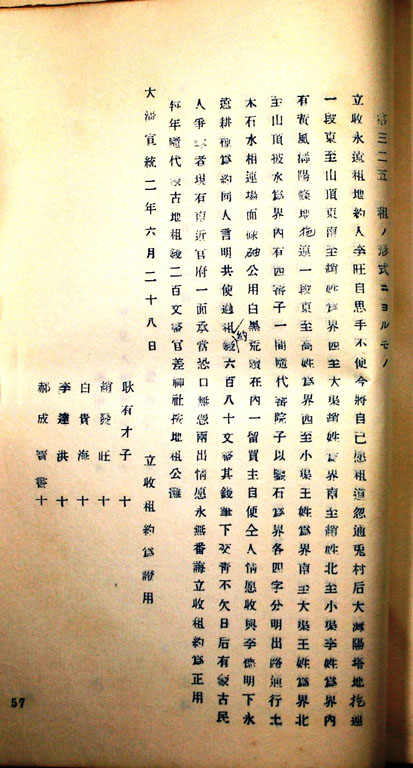 第三二五 租ノ形式ニヨルモノ
立收永遠租地約人李旺自思手不便今將自己愿租道忽迪兎村后大溝陽塔地拖連
一段東至山頂東南至趙姓爲界四至大渠趙姓爲界南至趙姓北至小渠李姓爲界內
有黃風溝陽條地拖連一段東至高姓爲界西至小渠王姓爲界南至大渠王姓爲界北
至山頂披水爲界內有四窰子一間隨代窰院子以鑿石爲界各四字分明出路通行土
木石水相連場面碌碡公用白黑荒墳在內一留買主自便仝人情愿收與李傑明下永
遠耕種爲約同人言明共使過租錢六百八十文帝其錢筆下交靑不欠日后有蒙古民
約
人爭奪者現有南近官府一面承當恐口無憑兩出情愿永無番誨立收租約爲正用
每年隨代蒙古地租錢二百文帝官差神社按地租公灘
大淸宣統二年六月二十八日 立收租約爲證用
耿有才子 十
趙發旺 十
白貴海 十
李達洪 十
郝成寶書 十
57